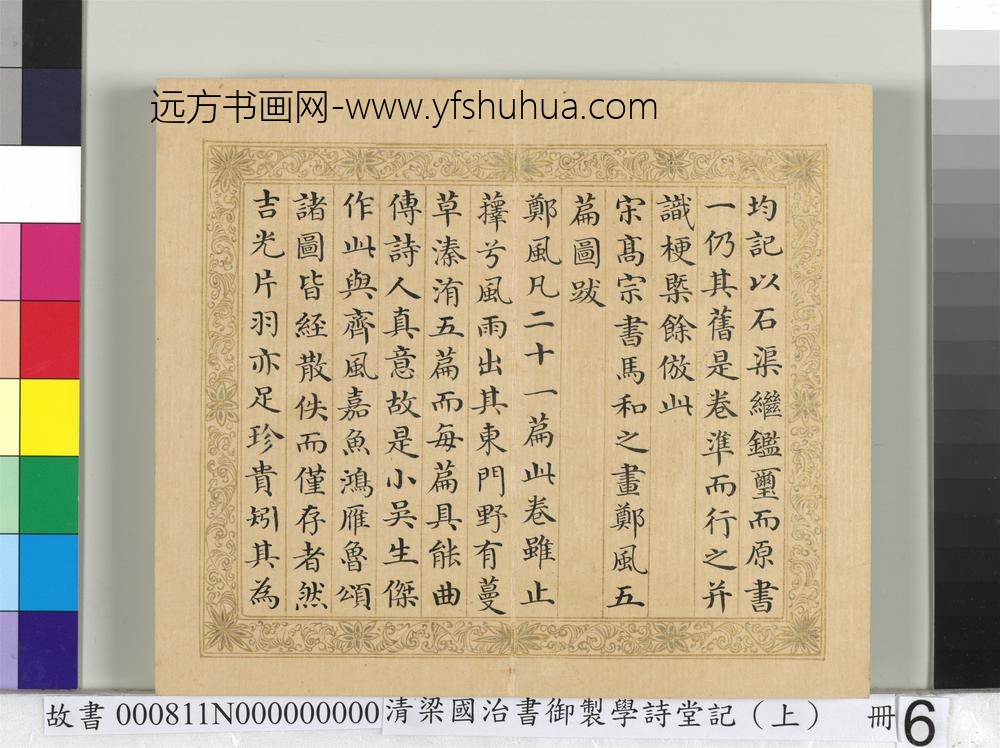 远方书画网-www.yfshuhua.com
均記以石渠繼鑑璽而原書
一仍其舊是卷準而行之并
識梗槩餘倣此
宋髙宗書馬和之畫鄭風五
篇圖跋
鄭風凡二十一篇此卷雖止
蘀兮風雨出其東門野有蔓
草溱洧五篇而每篇具能曲
傳詩人真意故是小吴生傑
作此與齊風嘉魚鴻雁魯頌
諸圖皆經散佚而僅存者然
吉光片羽亦足珍貴矧其為
故書 000811N000000000 清梁國治書御製學詩堂記（上） 冊 6